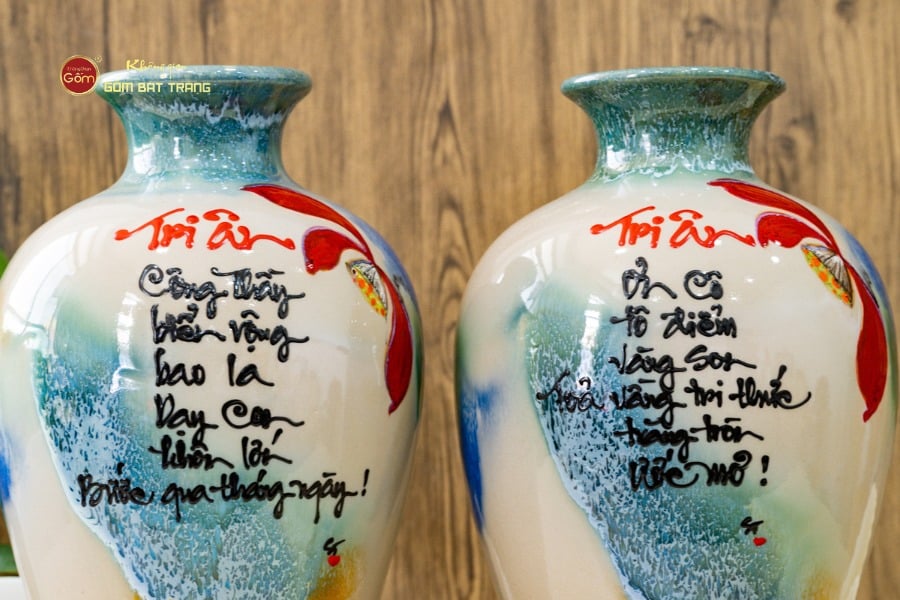 Không gian
GỐM BÁT TRÀNG
Gốm
Tri ân
Công Thầy
biển rộng
bao la
Dạy Con
khôn lớn
Bước qua tháng ngày!
Tri ân
Ơn Cô
tô điểm
vàng son
Toả vàng tri thức
trăng tròn
ước mơ!